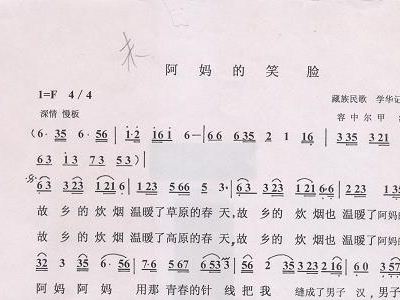 阿妈的笑脸
1=F 4/4 藏族民歌 学华记
深情 慢板 容中尔甲
(6· 35 6· 56 | i·2 i6i 6 — | 6 6 635 2 1 16 | 335 321
63 i3 73 53)
63 323 121 6· | 123 566 5 3· | 63 323 121 6·6 | 335
故乡的炊烟温暖了草原的春天,故乡的炊烟也温暖了阿妈的
故乡的炊烟温暖了高原的春天,故乡的炊烟也温暖了阿妈的
32 3 35 6· 56 | 7·6 567 6 533 | 56 2 35 323 216 | 03
阿妈阿妈 用那青春的针线把我 缝成了男子汉,男子